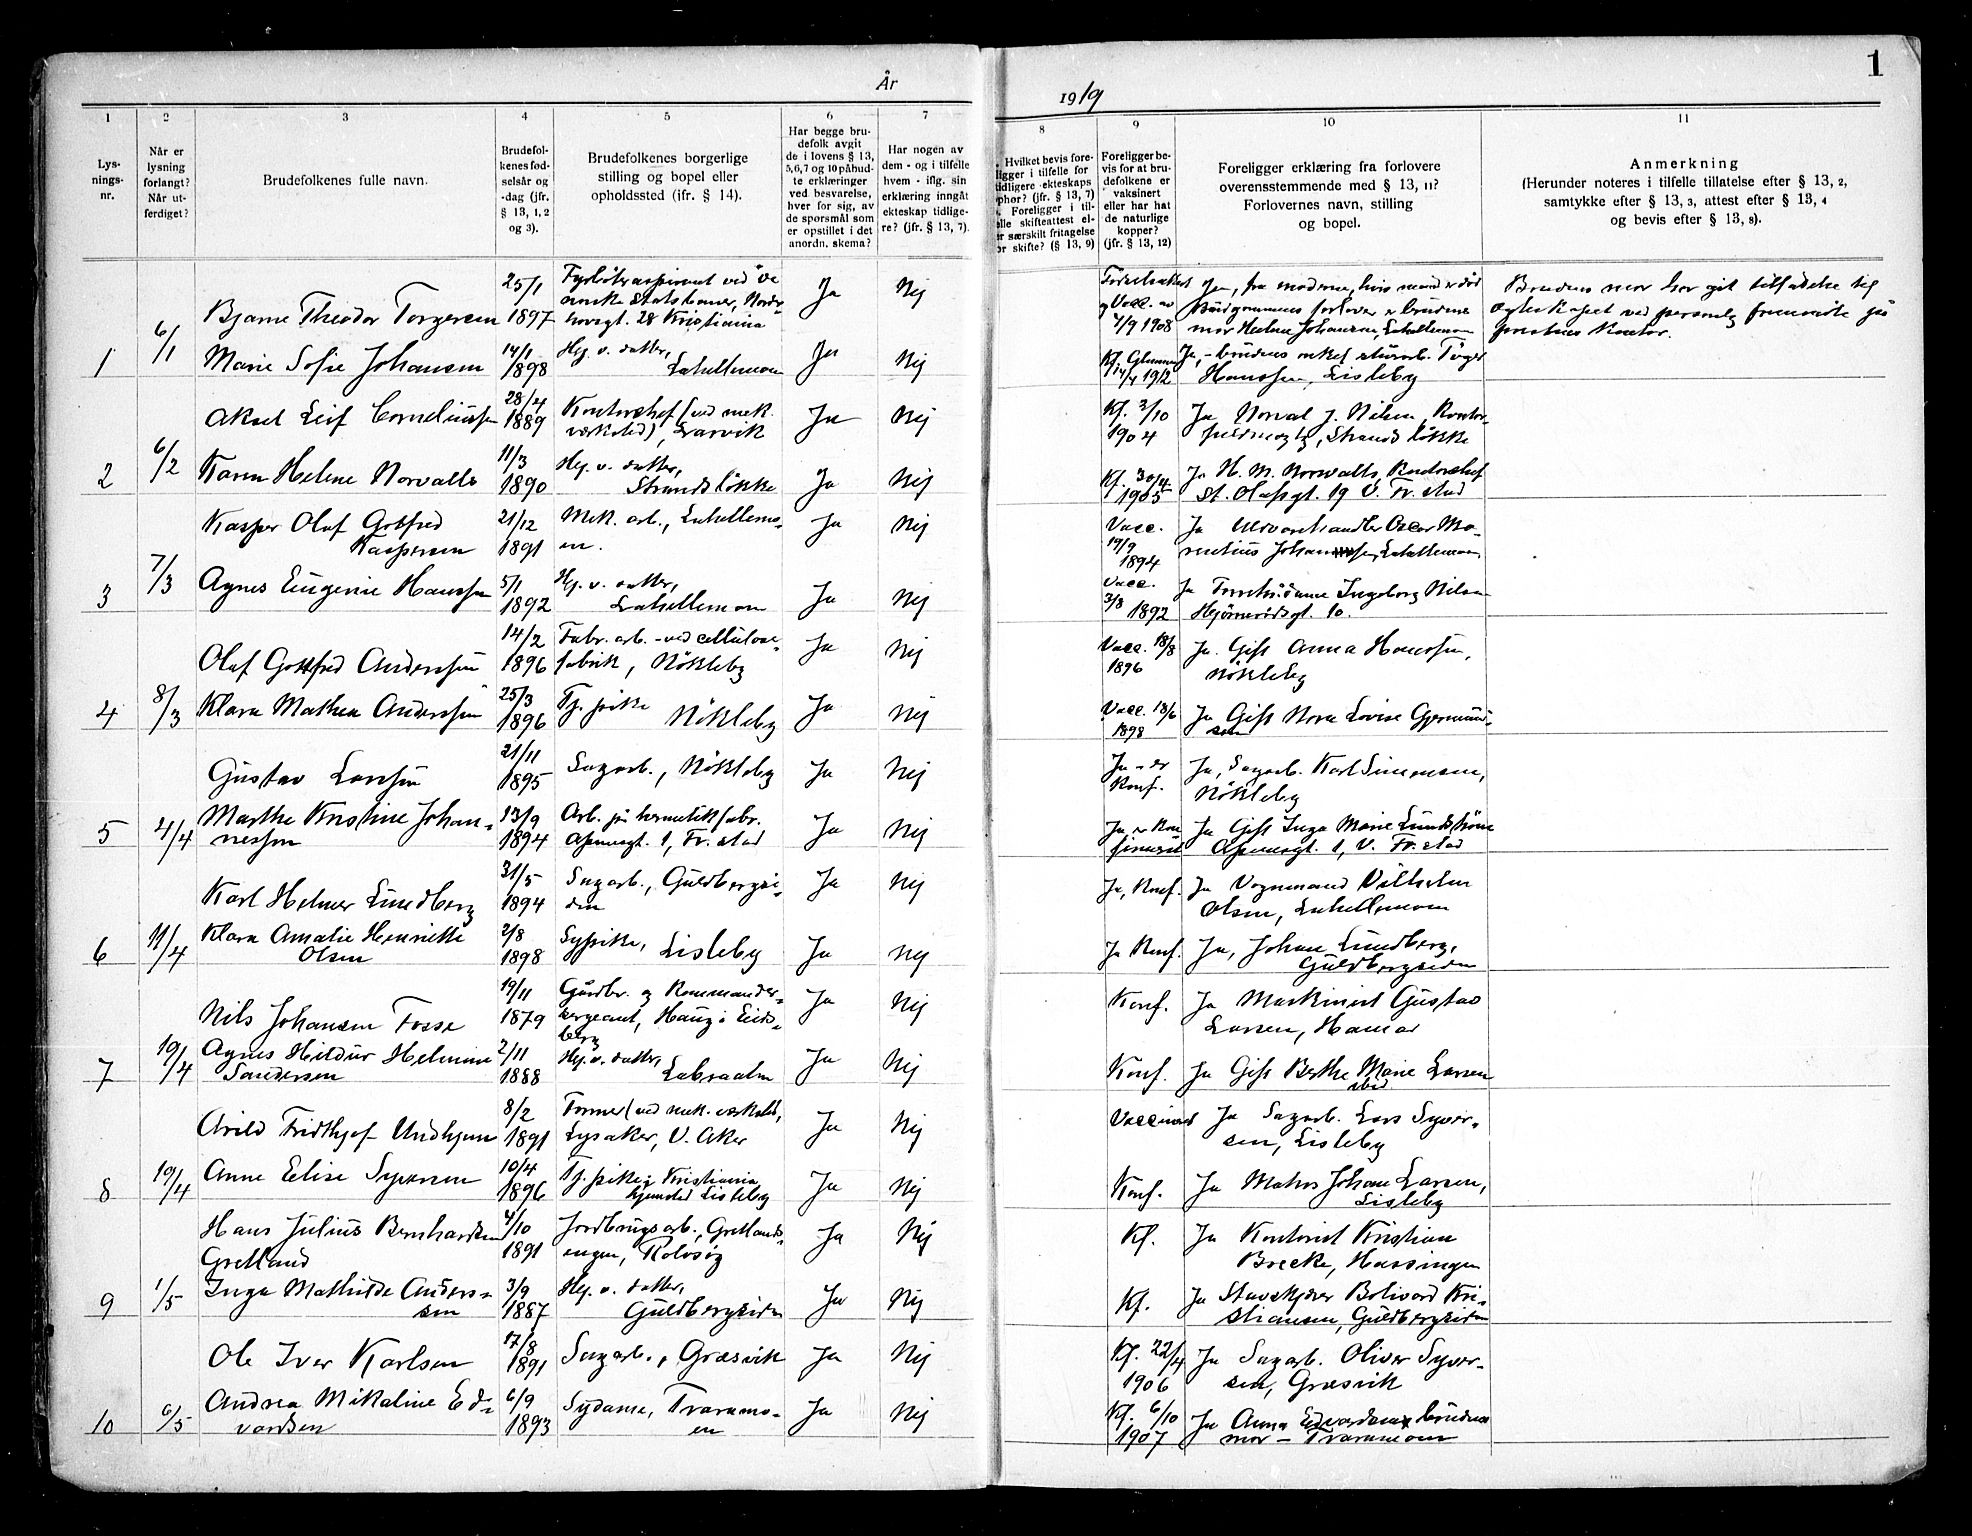 1
År
1919
1
2
3
4
5
6
7
8
9
10
11
Lys-
nings-
nr.
Når er
lysning
forlangt?
Når ut-
ferdiget?
Brudefolkenes fulle navn.
Brudefol-
kenes fød-
selsår og
-dag (jfr.
§ 13, 1, 2
og 3).
Brudefolkenes borgerlige
stilling og bopel eller
opholdssted (ifr. § 14).
Har begge bru-
defolk avgit
de i lovens § 13,
5,6,7 og 10 påbud-
te erklæringer
ved besvarelse,
hver for sig, av
de spørsmål som
er opstillet i det
anordn. skema?
Har nogen av
dem - og i tilfelle
hvem - iflg. sin
erklæring inngått
ekteskap tidlige-
re? (jfr. § 13, 7).
Hvilket bevis fore-
ligger i tilfelle for
tidligere ekteskaps
ophør? (jfr. § 13, 7)
Foreligger i til-
elle skifteattest el-
er særskilt fritagelse
or skifte? (§ 13, 9)
Foreligger be-
vis for at bru-
defolkene er
vaksinert
eller har hat
de naturlige
kopper?
(jfr. § 13, 12)
Foreligger erklæring fra forlovere
overensstemmende med § 13, 11?
Forlovernes navn, stilling
og bopel.
Anmerkning
(Herunder noteres i tilfelle tillatelse efter § 13, 2,
samtykke efter § 13, 3, attest efter § 13, 4
og bevis efter § 13, 8).
1
6/1
Bjarne Theodor Torgersen
25/1
1897
ved de
Statsbaner, Nordr
28 Kristiania
Ja
Nej
Vacc. av
4/9 1908
Ja, fra moderne, hvis mand er død
Brudgommens forlover er brudens
mor Helene Johansen, Lahellemoen
Brudens mor har git tilladelse til
egteskapet ved personlig fremmøte på
prestens kontor.
Marie Sofie Johansen
14/1
1898
Hj. v. datter,
Lahellemoen
Ja
Nej
Kf. Glemmen
14/4 1912
Ja, - brudens onkel
Hanssen, Lisleby
2
6/2
Aksel Leif Corneliussen
28/4
1889
Kontorchef (ved mek.
værksted), Larvik
Ja
Nej
Kf. 2/10
1904
Ja Norval J. Nilsen, Kontor-
fuldmægtig, Strandsløkke
Karen Helene Norvalls
11/3
1890
Hj. v. datter,
Strandsløkke
Ja
Nej
Kf. 30/4
1905
Ja H. M. Norvalls, Kontorchef
St. Olafsgt. 19 V. Fr.stad
3
7/3
Kasper Olaf Gotfred
Kaspersen
21/12
1891
Mek. arb., Lahellemo-
en.
Ja
Nej
Vacc.
19/9
1894
Ja Uldvarehandler Oscar Mo-
rentius Johannsen, Lahellemoen
Agnes Eugenie Hanssen
5/1
1892
Hj. v. datter,
Lahellemoen
Ja
Nej
Vacc.
3/8 1892
Ja Forretn.dame Ingeborg Nilsen
Hjørnerødsgt. 10.
4
8/3
Olaf Gottfred Anderssen
14/2
1896
Fabr. arb. - ved cellulose-
fabrik, Nøkleby
Ja
Nej
Vacc. 18/8
1896
Ja. Gift Anna Hanssen,
Nøkleby
Klara Mathea Anderssen
25/3
1896
Tj. pike
Nøkleby
Ja
Nej
Vacc. 18/6
1898
Ja Gift Nora Lovise Gjermund-
sen
5
4/4
Gustav Larssen
21/11
1895
Sagarb., Nøkleby
Ja
Nej
Ja - er
Konf.
Ja, Sagarb. Karl Simensen,
Nøkleby
Marthe Kristine Johan-
nessen
13/9
1894
Arb. på hermetikfabr.
Apenesgt. 1, Fr.stad
Ja
Nej
Ja er Kon
firmert
Ja Gift Inga Marie Lundstrøm
Apenesgt. 1, V. Fr.stad
6
11/4
Karl Helmer Lundberg
31/5
1894
Sagarb., Guldbergsi-
den
Ja
Nej
Ja, Konf.
Ja Vognmand Vilhelm
Olsen, Lahellemoen
Klara Amalie Henriette
Olsen
2/8
1898
Sypike, Lisleby
Ja
Nej
Ja Konf.
Ja, Johan Lundberg,
Guldbergsiden
7
19/4
Nils Johansen Fosse
19/11
1879
Gårdbr. og Kommander-
sergeant, Haug i Eids-
berg
Ja
Nej
Konf.
Ja Maskinist Gustav
Larsen, Hamar
Agnes Hildur Helmine
Sandersen
2/11
1888
Hj. v. datter,
Labraaten
Ja
Nej
Konf.
Ja Gift Berthe Marie Larsen
ibid
8
19/4
Arild Fridthjof Undhjem
8/2
1891
Former (ved mek. værksted,
Lysaker, V. Aker
Ja
Nej
Vaccinert
Ja Sagarb. Lars Syver-
sen, Lisleby
Anne Elise Syversen
10/4
1896
Tj. pike i Kristiania
hjemsted Lisleby
Ja
Nej
Konf.
Ja Matros Johan Larsen,
Lisleby
9
1/5
Hans Julius Bernhardsen
Gretland
4/10
1891
Jordbrugsarb., Gretlands-
engen, Rolvsøy
Ja
Nej
Kf.
Ja Kontorist Kristian
Brecke, Hassingen
Inga Mathilde Anders-
sen
3/9
1887
Hj. v. datter,
Guldbergsiden
Ja
Nej
Kf.
Ja Stavskjærer Bolivard Kri-
stiansen, Guldbergsiden
10
6/5
Ole Iver Karlsen
17/8
1891
Sagarb., Græsvik
Ja
Nej
Kf. 22/4
1906
Ja Sagarb. Oliver Syver-
sen, Græsvik
Andrea Mikaline Ed-
vardsen
6/9
1893
Sydame, Traramo-
en
Ja
Nej
Kf. 6/10
1907
Ja Anna Edvardsen brudens
mor - Traramoen